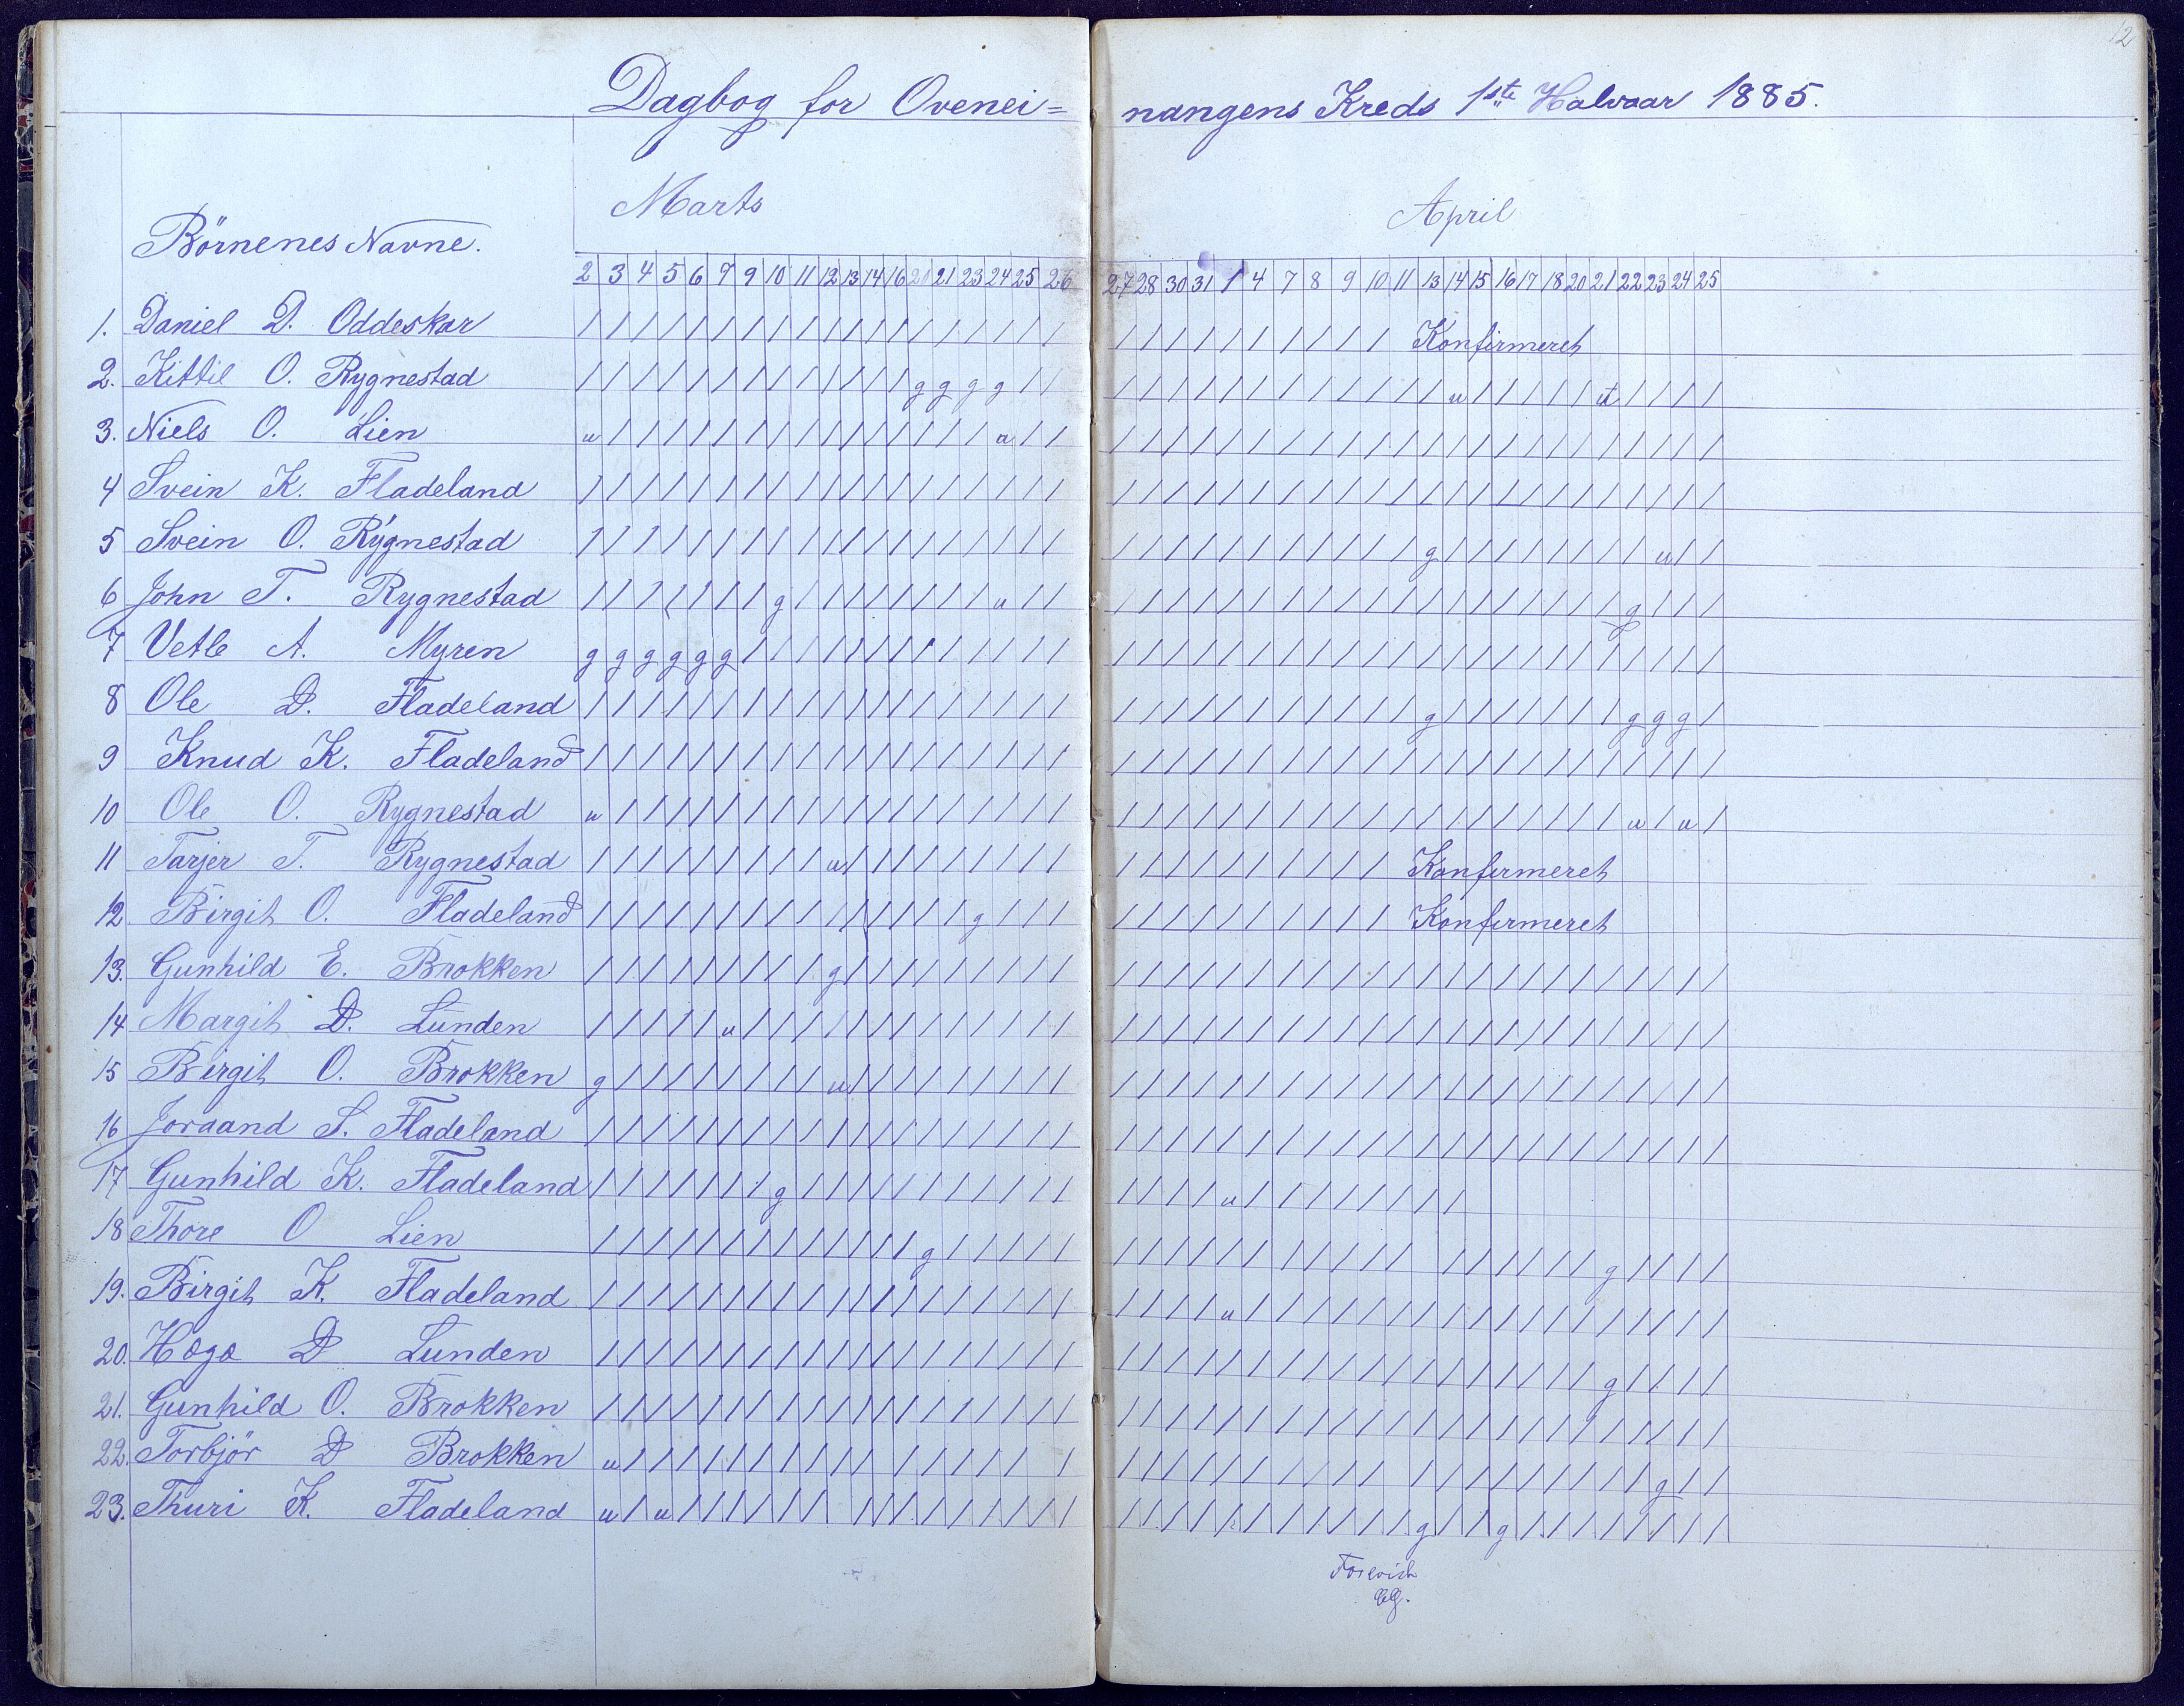 12
Dagbog for Ovenei= nangens Kreds 1ste Halvaar 1885.
Marts April
Börnenes Navne.
2 3 4 5 6 7 9 10 11 12 13 14 16 20 21 23 24 25 26 27 28 30 31 1 4 7 8 9 10 11 13 14 15 16 17 18 20 21 22 23 24 25
1. Daniel D. Oddeskar / / / / / / / / / / / / / / / / / / / / / / / / / / / / / / Konfirmeret
2. Kittil O. Rygnestad / / / / / / / / / / / / / g g g g / / / / / / / / / / / / / / / / u / / / / / u / / / /
3. Niels O. Lien u / / / / / / / / / / / / / / / u / / / / / / / / / / / / / / / / / / / / / / / / /
4 Svein K. Fladeland / / / / / / / / / / / / / / / / / / / / / / / / / / / / / / / / / / / / / / / / / /
5 Svein O. Rygnestad / / / / / / / / / / / / / / / / / / / / / / / / / / / / / / g / / / / / / / / u / /
6 John T. Rygnestad / / / / / / / g / / / / / / / / u / / / / / / / / / / / / / / / / / / / / g / / /
7 Vetle A. Myren g g g g g g / / / / / / / / / / / / / / / / / / / / / / / / / / / / / / / / / / / /
8 Ole D. Fladeland / / / / / / / / / / / / / / / / / / / / / / / / / / / / / / g / / / / / / / g g g /
9 Knud K. Fladeland / / / / / / / / / / / / / / / / / / / / / / / / / / / / / / / / / / / / / / / / / /
10 Ole O. Rygnestad u / / / / / / / / / / / / / / / / / / / / / / / / / / / / / / / / / / / / / u / u /
11 Tarjer T. Rygnestad / / / / / / / / / u / / / / / / / / / / / / / / / / / / / / Konfirmeret
12 Birgit O. Fladeland / / / / / / / / / / / / / / / g / / / / / / / / / / / / / / Konfirmeret
13. Gunhild E. Brokken / / / / / / / / / g / / / / / / / / / / / / / / / / / / / / / / / / / / / / / / / /
14 Margit D. Lunden / / / / / u / / / / / / / / / / / / / / / / / / / / / / / / / / / / / / / / / / / /
15 Birgit O. Brokken g / / / / / / / / u / / / / / / / / / / / / / / / / / / / / / / / / / / / / / / / /
16 Joraand S. Fladeland / / / / / / / / / / / / / / / / / / / / / / / / / / / / / / / / / / / / / / / / / /
17 Gunhild K. Fladeland / / / / / / / g / / / / / / / / / / / / / / / u / / / / / / / /
18 Thore O Lien / / / / / / / / / / / / / g / / / / / / / / / / / / / / / / / / / / / / / g / / / /
19. Birgit K. Fladeland / / / / / / / / / / / / / / / / / / / / / / / u / / / / / / / / / / / / / / / / / /
20. Hæge D Lunden / / / / / / / / / / / / / / / / / / / / / / / / / / / / / / / / / / / / / g / / / /
21. Gunhild O. Brokken / / / / / / / / / / / / / / / / / / / / / / / / / / / / / / / / / / / / / / / / / /
22. Torbjör D Brokken u / / / / / / / / / / / / / / / / / / / / / / / / / / / / / / / / / / / / / g / /
23. Thuri K. Fladeland u / u / / / / / / / / / / / / / / / / / / / / / / / / / / g / / g / / / / / / / /
Forevist